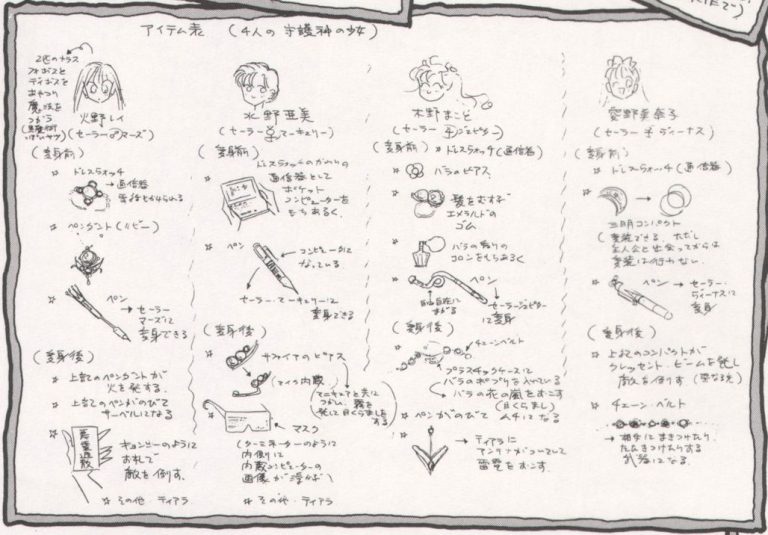 アイテム表 (4人の守護神の少女)
2匹のカラス
フォボスと
ディモスを
あやつり
魔法を
つかう
火野レイ
(セーラー♂マーズ)
(変身前)
☆ ドレスウォッチ
→ 通信器
☆ ペンダント(ルビー)
☆
ペン
→ セーラー
マーズに
変身できる
(変身後)
☆ 上記のペンダントが
火を発する。
☆ 上記のペンがのびて
サーベルになる
☆
悪霊退散
キョンシーのように
お札で
敵を倒す。
☆ その他 ティアラ
水野亜美
(セーラー☿マーキュリー)
(変身前)
☆ ドレスウォッチのかわりの
通信器として
ポケット
コンピューターを
もちあるく。
☆ ペン
コンピューターに
なっている
セーラー・マーキュリーに
変身できる
(変身後)
☆ サファイアのピアス
(マイク内蔵
☆
マスク
(ターミネーターのように
内側に
内蔵コンピューターの
画像が浮かぶ)
☆ その他・ティアラ
木野まこと
(セーラー♃ジュピター)
(変身前) ☆ ドレスウォッチ(通信器)
☆ バラのピアス
☆ 髪をむすぶ
エメラルドの
ゴム
☆ バラの香りの
コロンをもちあるく
☆ ペン
自由自在に
まがる
→ セーラージュピター
に変身
(変身後)
☆ チェーンベルト
プラスチックケースに
バラのポプリを入れている
→ バラの花の嵐をおこす
(目くらまし)
☆ ペンがのびて ムチになる
☆
→ ティアラに
アンテナがついてて
雷電をおこす。
愛野美奈子
(セーラー♀ヴィーナス)
(変身前)
☆ ドレスウォッチ(通信器)
☆
三日月コンパクト
(変装できる。ただし
主人公と出会ってからは
変装は行わない。
☆ ペン → セーラー・
ヴィーナスに
変身
(変身後)
☆ 上記のコンパクトが
クレッセント・ビームを発し
敵を倒す
☆ チェーン・ベルト
→ 相手にまきつけたり、
たたきつけたりする
武器になる。